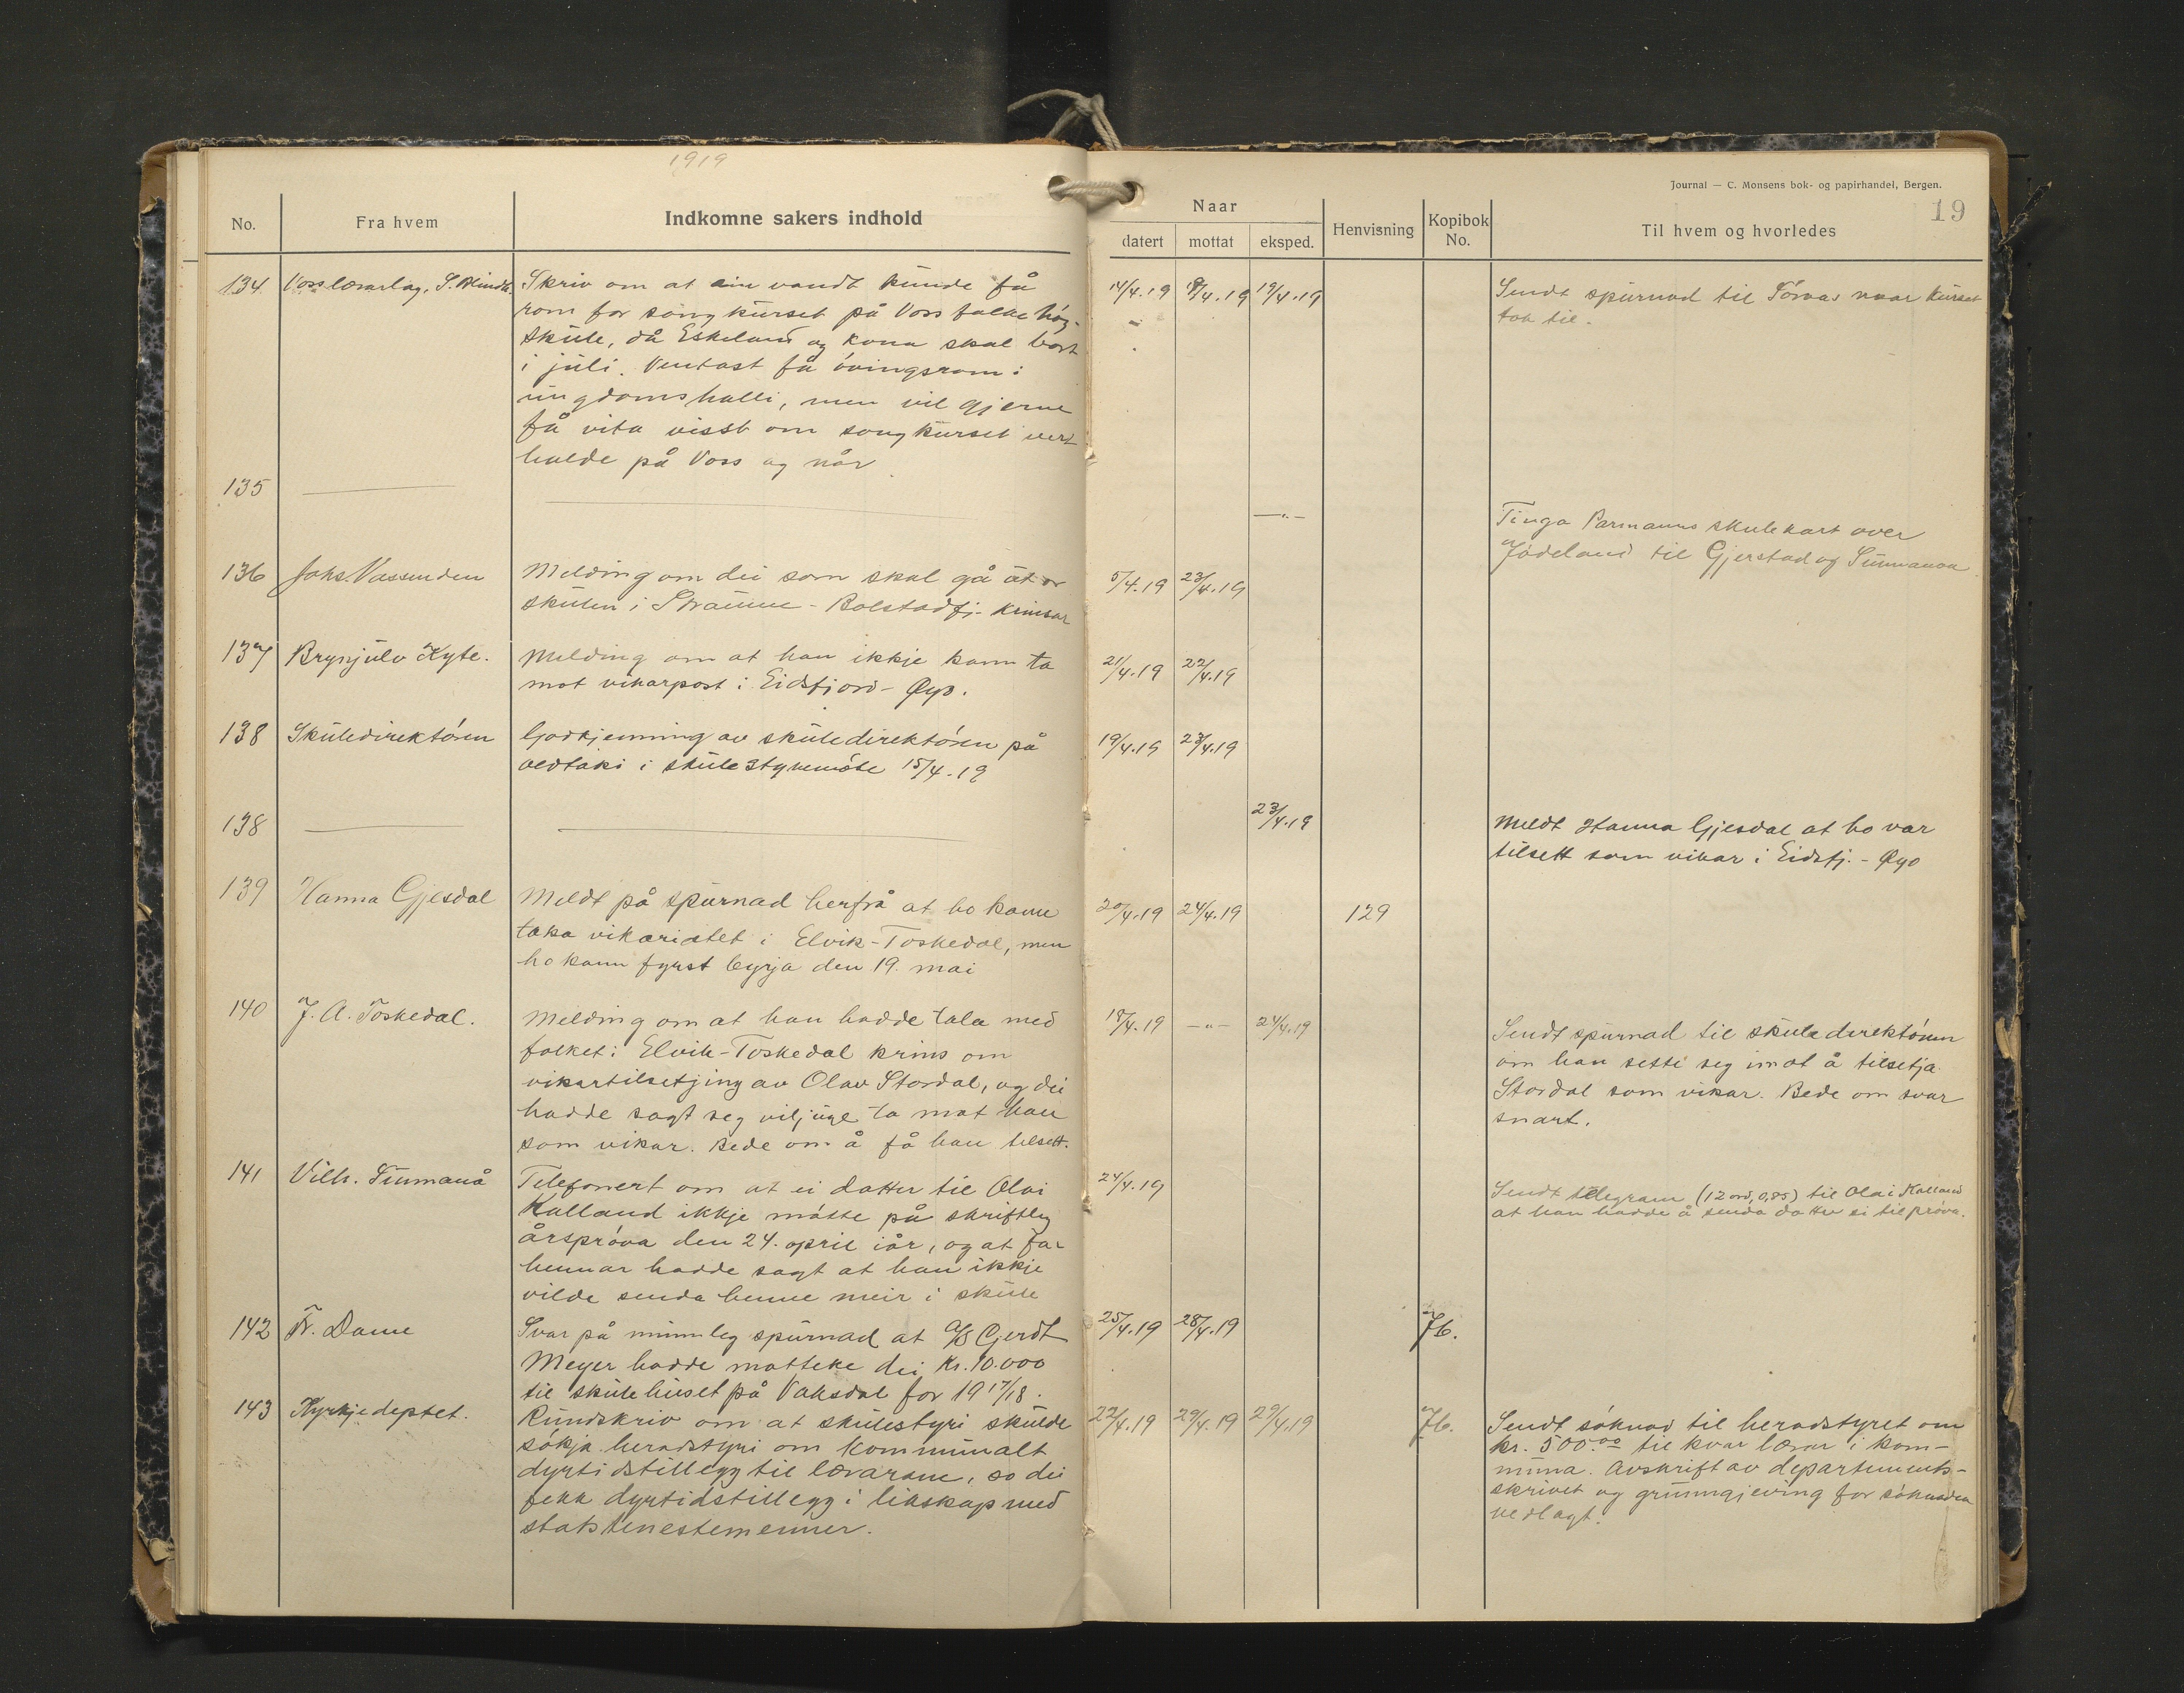 1919
Journal — C. Monsens bok- og papirhandel, Bergen.
19
No.
Fra hvem
Indkomne sakers indhold
Naar
datert
mottat
eksped.
Henvisning
Kopibok No.
Til hvem og hvorledes
134 Voss lærarlag, S. Skriv om at ein vandt kunde få 14/4.19 19/4.19 Sendt spurnad til Tórvas naar kurset
rom for songkurset på Voss folkehóg- tok til.
skule, då Eskeland og kona skal bort
i juli. Ventast få óvingsrom i
ungdomshalli, men vil gjerne
få vita visst om songkurset vert
halde på Voss og når
135 — — —„—
Tinga Parmanns skulekart over
Jódeland til Gjerstad og Simmanaa
136 Johs. Vassenden Melding om dei som skal gå ut or 5/4.19 23/4.19
skulen i Straume - Bolstadfj. krinsar
137 Brynjulv Kyte. Melding om at han ikkje kann ta 21/4.19 22/4.19
mot vikarpost i Eidsfjord - Øyo.
138 Skuledirektóren Godkjenning av skuledirektóren på 19/4.19 23/4.19
vedtaki i skulestyremóte 15/4.19
138 — — 23/4.19 Meldt Hanna Gjesdal at ho var
tilsett som vikar i Eidsfj. - Øyo
139 Hanna Gjesdal Meldt på spurnad herfrå at ho kann 20/4.19 24/4.19 129
taka vikariatet i Elvik-Toskedal, men
ho kann fyrst byrja den 19. mai
140 J. A. Toskedal. Melding om at han hadde tala med 18/4.19 —„— 24/4.19 Sendt spurnad til skuledirektóren
folket i Elvik-Toskedal krins om om han sette seg imot å tilsetja
vikartilsetjing av Olav Stordal, og dei Stordal som vikar. Bede om svar
hadde sagt seg viljuge ta mot han snart.
som vikar. Bede om å få han tilsett.
141 Vilh. Simmanå Telefonert om at ei datter til Olai 24/4.19 Sendt telegram (12 ord, 0,85) til Olai Kalland
Kalland ikkje mótte på skriftleg at han hadde å senda datter si til próva.
årspróva den 24. april iår, og at far
hennar hadde sagt at han ikkje
vilde senda henne meir i skule
142 Fr. Dame Svar på munnleg spurnad at A/S Gerdt 25/4.19 28/4.19 Jb.
Meyer hadde motteke dei kr. 10.000
til skulehuset på Vaksdal for 1917/18.
143 Kyrkjedeptet. Rundskriv om at skulestyri skulde 22/4.19 29/4.19 29/4.19 Jb. Sendt sóknad til heradstyret om
sókja heradstyri om kommunalt kr. 500.00 til kvar lærar i kom-
dyrtidstillegg til lærarane, so dei muna. Avskrift av departements-
fekk dyrtidstillegg i likskap med skrivet og grunngjeving for sóknaden
statstenestemenner. vedlagt.